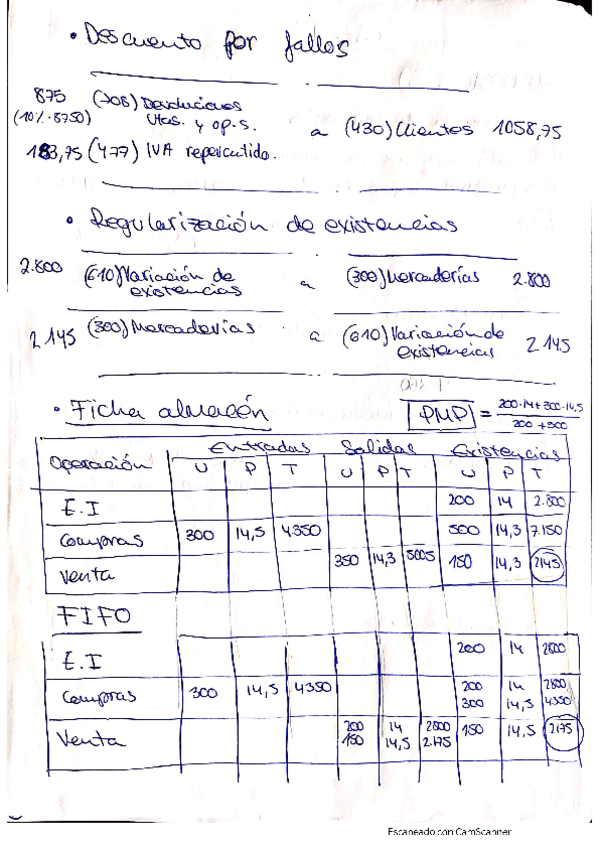 • Descuento por fallos
875 (708) Devoluciones
(10%·8750) Vtas. y op.s. a (430) Clientes 1058,75
183,75 (477) IVA repercutido.
• Regularización de existencias
2.800 (610) Variación de a (300) Mercaderías 2.800
existencias
2145 (300) Mercaderías a (610) Variación de 2145
existencias
• Ficha almacén PMP = 200·14+300·14,5
200 + 300
Entradas Salidas Existencias
Operación U P T U P T U P T
E.I 200 14 2.800
Compras 300 14,5 4.350 500 14,3 7.150
Venta 350 14,3 5005 150 14,3 2145
FIFO
E.I 200 14 2800
Compras 300 14,5 4350 200 14 2800
300 14,5 4350
Venta 200 14 2800 150 14,5 2175
150 14,5 2.175
Escaneado con CamScanner